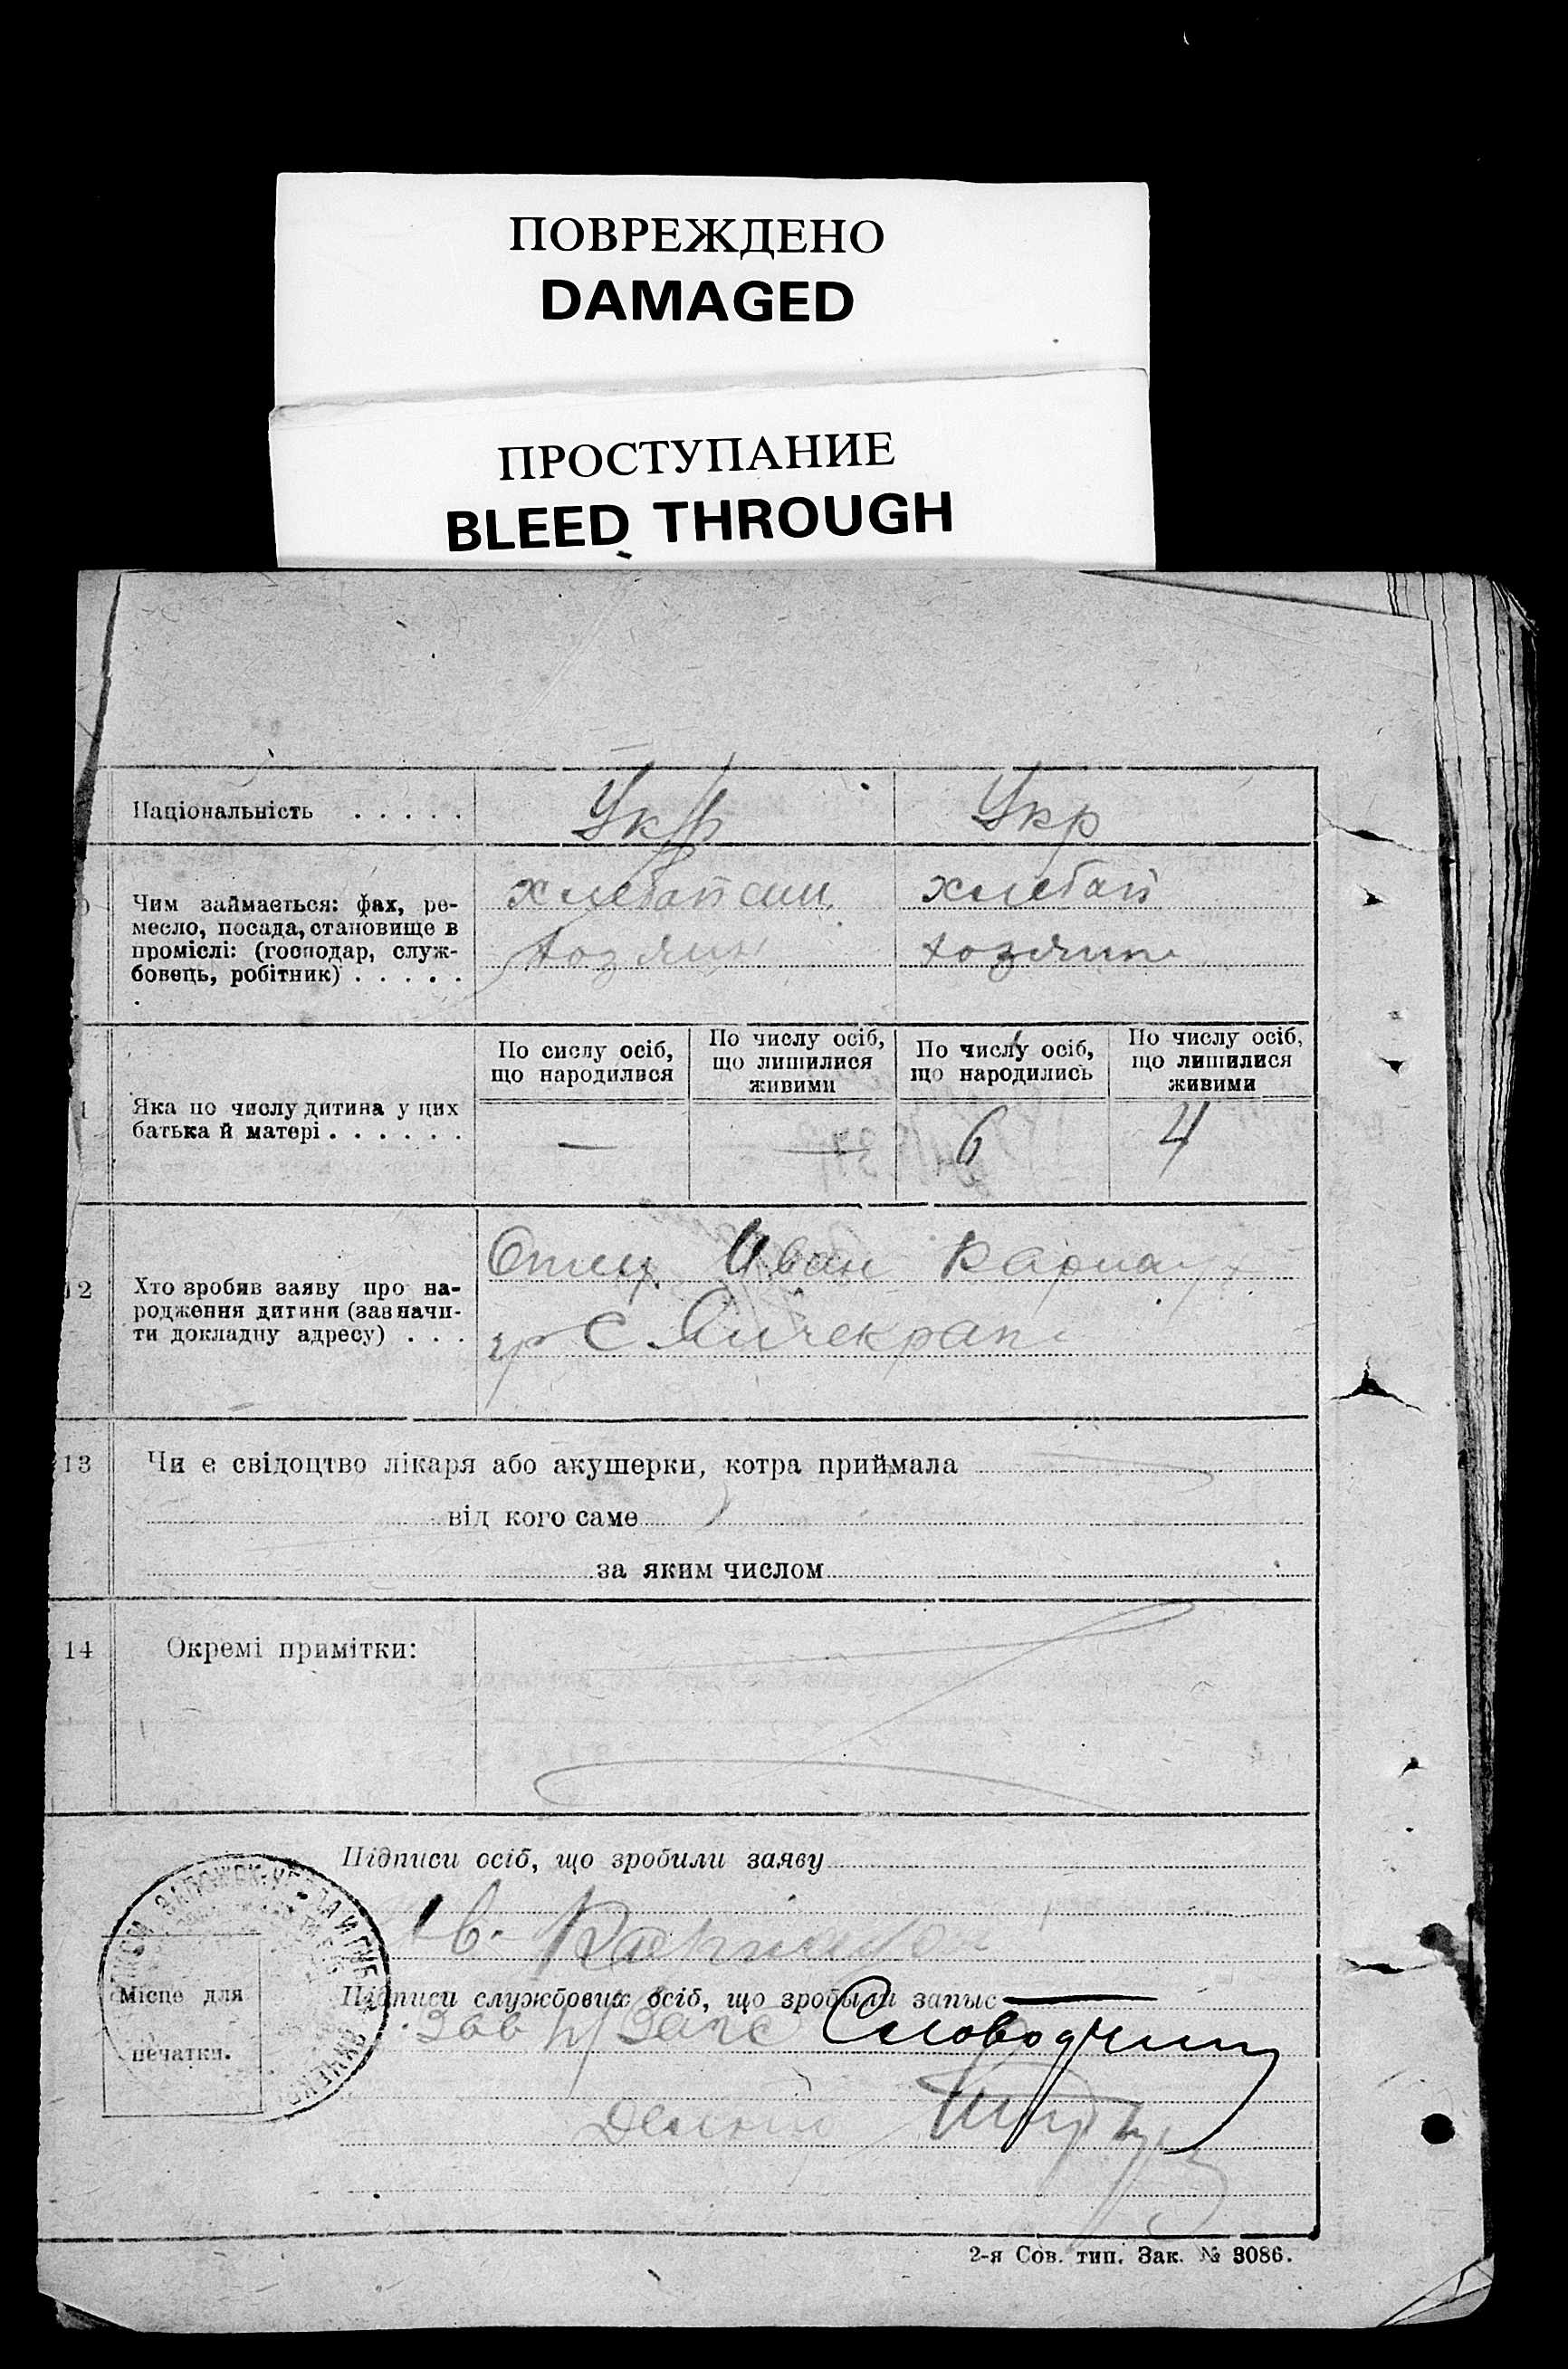 ПОВРЕЖДЕНО
DAMAGED
ПРОСТУПАНИЕ
BLEED THROUGH
Національність . . . . .
Укр
Укр
Чим займається: фах, ре-
месло, посада, становище в
проміслі: (господар, служ-
бовець, робітник) . . . . .
хлебопаш
хлебоп
хозяин
хозяин
Яка по числу дитина у цих
батька й матері . . . . . .
По сислу осіб,
що народилися
По числу осіб,
що лишилися
живими
По числу осіб,
що народились
По числу осіб,
що лишилися
живими
—
—
6
4
12
Хто зробив заяву про на-
родження дитини (зазначи-
ти докладну адресу) . . .
Отец Иван
гр с.
13
Чи є свідоцтво лікаря або акушерки, котра приймала
від кого саме
за яким числом
14
Окремі примітки:
Підписи осіб, що зробили заяву
Ів.
Підписи службових осіб, що зробыли запыс
Зав
Місце для
печатки.
2-я Сов. тип. Зак. № 3086.